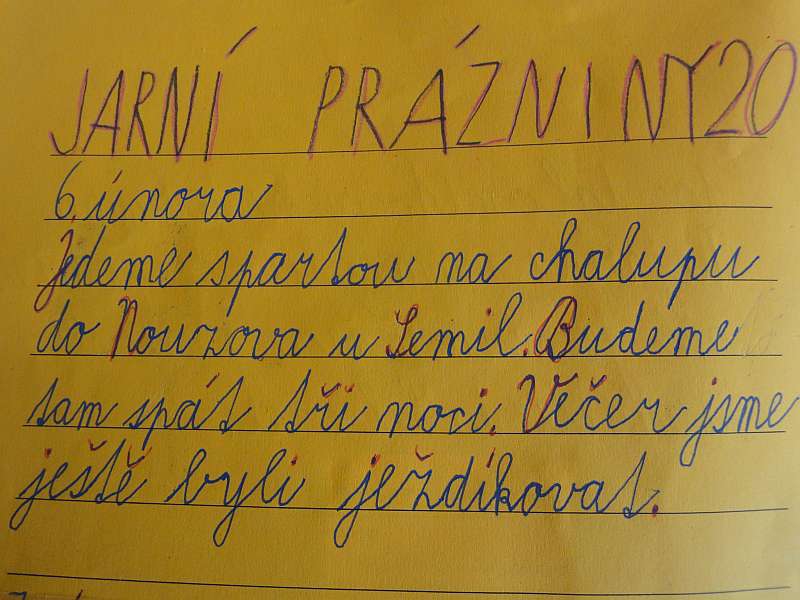 JARNÍ PRÁZNINY20
6. února
Jedeme spartou na chalupu
do Nouzova u Semil. Budeme
tam spát tři noci. Večer jsme
ještě byli ježdíkovat.